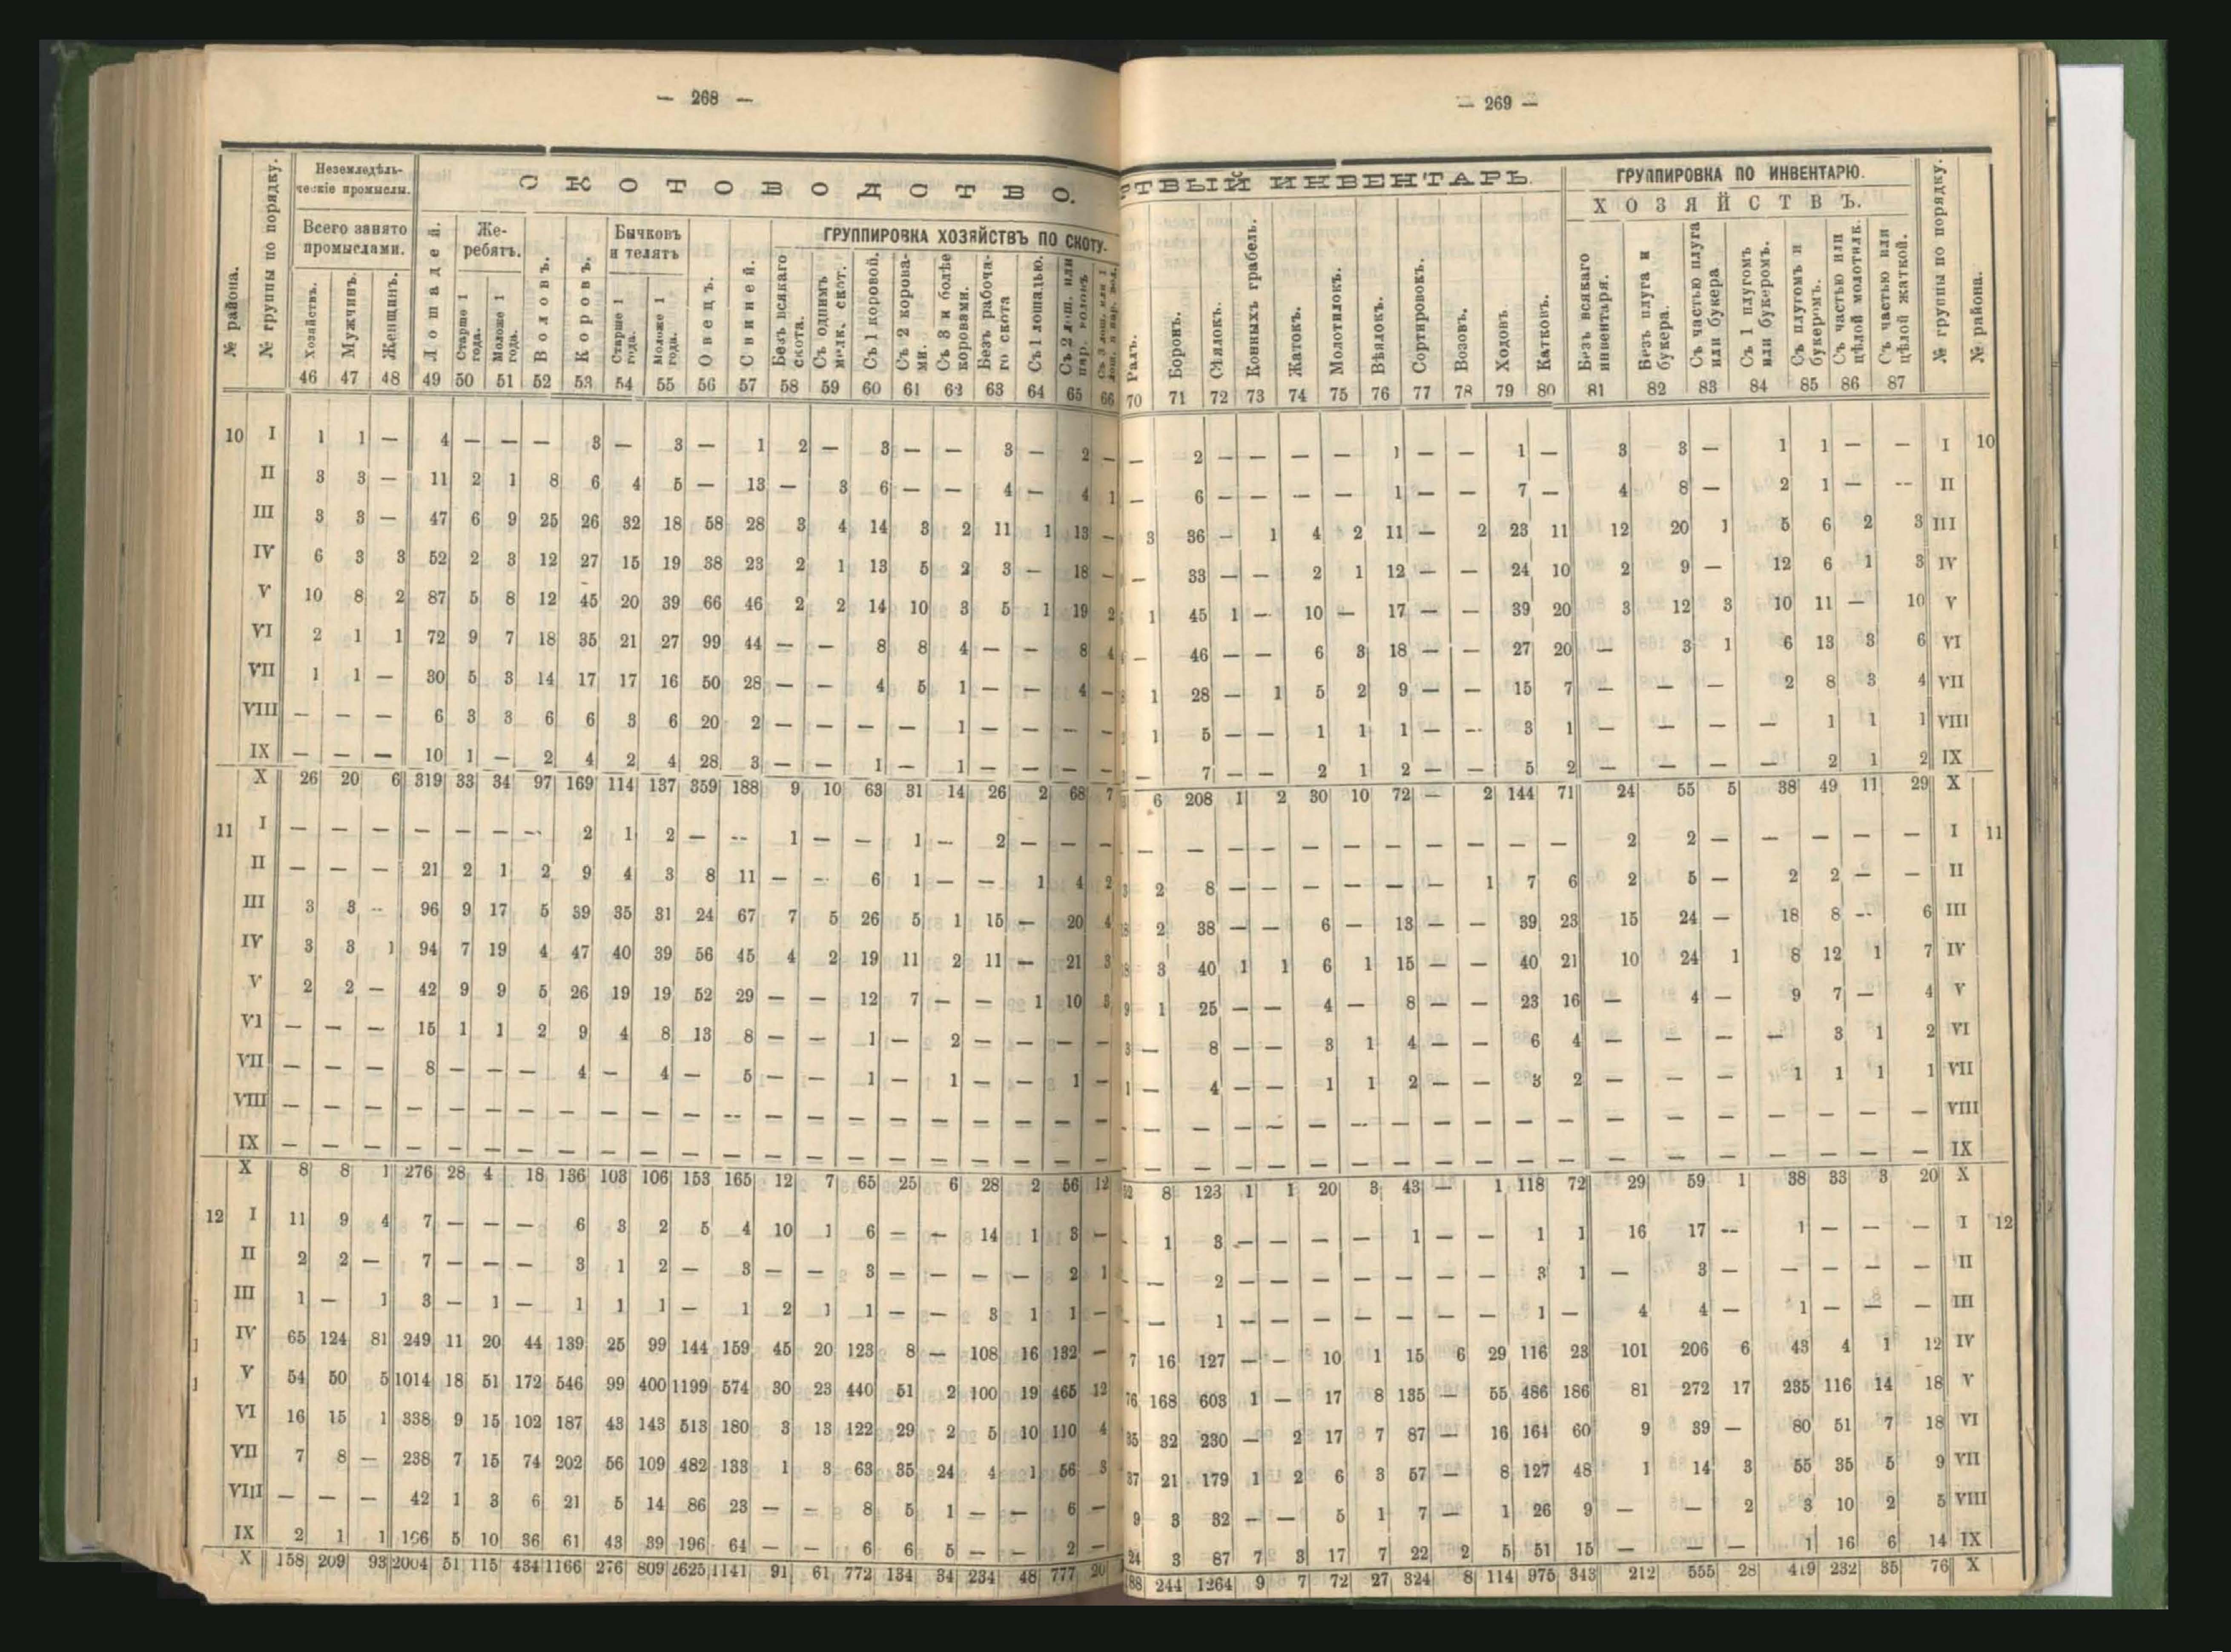 — 268 —
№ района.
№ группы по порядку.
Неземледѣль-
ческіе промыслы.
СКОТОВОДСТВО.
Всего занято
промыслами.
Лошадей.
Же-
ребятъ.
Воловъ.
Коровъ.
Бычковъ
и телятъ
Овецъ.
Свиней.
ГРУППИРОВКА ХОЗЯЙСТВЪ ПО СКОТУ.
Хозяйствъ.
Мужчинъ.
Женщинъ.
Старше 1
года.
Моложе 1
года.
Старше 1
года.
Моложе 1
года.
Безъ всякаго
скота.
Съ однимъ
мелк. скот.
Съ 1 коровой.
Съ 2 корова-
ми.
Съ 3 и болѣе
коровами.
Безъ рабоча-
го скота
Съ 1 лошадью.
46 47 48 49 50 51 52 53 54 55 56 57 58 59 60 61 62 63 64 65 66
10 I 1 1 — 4 — — — 3 — 3 — 1 2 — 3 — — 3 — 2 —
II 3 3 — 11 2 1 8 6 4 5 — 13 — 3 6 — — 4 — 4 1
III 3 3 — 47 6 9 25 26 32 18 58 28 3 4 14 3 2 11 1 13 —
IV 6 3 3 52 2 3 12 27 15 19 38 23 2 1 13 5 2 3 — 18 —
V 10 8 2 87 5 8 12 45 20 39 66 46 2 2 14 10 3 5 1 19 2
VI 2 1 1 72 9 7 18 35 21 27 99 44 — — 8 8 4 — — 8 4
VII 1 1 — 30 5 3 14 17 17 16 50 28 — — 4 5 1 — — 4 —
VIII — — — 6 3 3 6 6 3 6 20 2 — — — — 1 — — — —
IX — — — 10 1 — 2 4 2 4 28 3 — — 1 — 1 — — — —
X 26 20 6 319 33 34 97 169 114 137 359 188 9 10 63 31 14 26 2 68 7
11 I — — — — — — — 2 1 2 — — 1 — — 1 — 2 — — —
II — — — 21 2 1 2 9 4 3 8 11 — — 6 1 — — 1 4 2
III 3 3 — 96 9 17 5 39 35 31 24 67 7 5 26 5 1 15 — 20 4
IV 3 3 1 94 7 19 4 47 40 39 56 45 4 2 19 11 2 11 — 21 3
V 2 2 — 42 9 9 5 26 19 19 52 29 — — 12 7 — — 1 10 3
VI — — — 15 1 1 2 9 4 8 13 8 — — 1 — 2 — — — —
VII — — — 8 — — — 4 — 4 — 5 — — 1 — 1 — — 1 —
VIII — — — — — — — — — — — — — — — — — — — — —
IX — — — — — — — — — — — — — — — — — — — — —
X 8 8 1 276 28 4 18 136 103 106 153 165 12 7 65 25 6 28 2 56 12
12 I 11 9 4 7 — — — 6 3 2 5 4 10 1 6 — — 14 1 3 —
II 2 2 — 7 — — — 3 1 2 — 3 — — 3 — — — — 2 1
III 1 — 1 3 — 1 — 1 1 1 — 1 2 1 1 — — 3 1 1 —
IV 65 124 81 249 11 20 44 139 25 99 144 159 45 20 123 8 — 108 16 132 —
V 54 50 5 1014 18 51 172 546 99 400 1199 574 30 23 440 51 2 100 19 465 12
VI 16 15 1 338 9 15 102 187 43 143 513 180 3 13 122 29 2 5 10 110 4
VII 7 8 — 238 7 15 74 202 56 109 482 133 1 3 63 35 24 4 1 56 3
VIII — — — 42 1 3 6 21 5 14 86 23 — — 8 5 1 — — 6 —
IX 2 1 1 106 5 10 36 61 43 39 196 64 — — 6 6 5 — — 2 —
X 158 209 93 2004 51 115 434 1166 276 809 2625 1141 91 61 772 134 34 234 48 777 20
— 269 —
РТВЫЙ ИНВЕНТАРЬ.
ГРУППИРОВКА ПО ИНВЕНТАРЮ.
ХОЗЯЙСТВЪ.
Ралъ.
Боронъ.
Сѣялокъ.
Конныхъ грабель.
Жатокъ.
Молотилокъ.
Вѣялокъ.
Сортировокъ.
Возовъ.
Ходовъ.
Катковъ.
Безъ всякаго
инвентаря.
Безъ плуга и
букера.
Съ частью плуга
или букера
Съ 1 плугомъ
или букеромъ.
Съ плугомъ и
букеромъ.
Съ частью или
цѣлой молотилк.
Съ частью или
цѣлой жаткой.
№ группы по порядку.
№ района.
70 71 72 73 74 75 76 77 78 79 80 81 82 83 84 85 86 87
— 2 — — — — 1 — — 1 — 3 3 — 1 1 — — I 10
— 6 — — — — 1 — — 7 — 4 8 — 2 1 — — II
3 36 — 1 4 2 11 — 2 23 11 12 20 1 5 6 2 3 III
— 33 — — 2 1 12 — — 24 10 2 9 — 12 6 1 3 IV
1 45 1 — 10 — 17 — — 39 20 3 12 3 10 11 — 10 V
— 46 — — 6 3 18 — — 27 20 — 3 1 6 13 3 6 VI
1 28 — 1 5 2 9 — — 15 7 — — — 2 8 3 4 VII
1 5 — — 1 1 1 — — 3 1 — — — — 1 1 1 VIII
— 7 — — 2 1 2 — — 5 2 — — — — 2 1 2 IX
6 208 1 2 30 10 72 — 2 144 71 24 55 5 38 49 11 29 X
— — — — — — — — — — — 2 2 — — — — — I 11
2 8 — — — — — — 1 7 6 2 5 — 2 2 — — II
2 38 — — 6 — 13 — — 39 23 15 24 — 18 8 — 6 III
3 40 1 1 6 1 15 — — 40 21 10 24 1 8 12 1 7 IV
1 25 — — 4 — 8 — — 23 16 — 4 — 9 7 — 4 V
— 8 — — 3 1 4 — — 6 4 — — — — 3 1 2 VI
— 4 — — 1 1 2 — — 3 2 — — — 1 1 1 1 VII
— — — — — — — — — — — — — — — — — — VIII
— — — — — — — — — — — — — — — — — — IX
8 123 1 1 20 3 43 — 1 118 72 29 59 1 38 33 3 20 X
1 3 — — — — 1 — — 1 1 16 17 — 1 — — — I 12
— 2 — — — — — — — 3 1 — 3 — — — — — II
— 1 — — — — — — — 1 — 4 4 — 1 — — — III
7 16 127 — — 10 1 15 6 29 116 23 101 206 6 43 4 1 12 IV
76 168 603 1 — 17 8 135 — 55 486 186 81 272 17 235 116 14 18 V
35 32 230 — 2 17 7 87 — 16 164 60 9 39 — 80 51 7 18 VI
37 21 179 1 2 6 3 57 — 8 127 48 1 14 3 55 35 5 9 VII
9 3 32 — — 5 1 7 — 1 26 9 — — 2 3 10 2 5 VIII
24 3 87 7 3 17 7 22 2 5 51 15 — — — 1 16 6 14 IX
88 244 1264 9 7 72 27 324 8 114 975 343 212 555 28 419 232 35 76 X